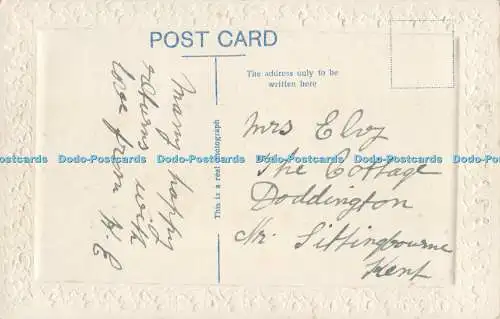 POST CARD
Many happy
returns with
love from H.E
This is a real photograph
The address only to be
written here
Mrs Elvy
The Cottage
Doddington
Nr. Sittingbourne
Kent
Dodo-Postcards Dodo-Postcards Dodo-Postcards Dodo-Postcards Dodo-Postcards Dodo-Postcards